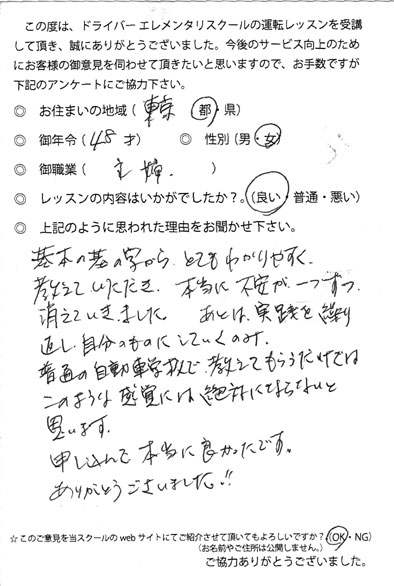 この度は、ドライバー エレメンタリスクールの運転レッスンを受講
して頂き、誠にありがとうございました。今後のサービス向上のため
にお客様の御意見を伺わせて頂きたいと思いますので、お手数ですが
下記のアンケートにご協力下さい。
◎ お住まいの地域（東京 都・県）
◎ 御年令（45才） ◎ 性別（男・女）
◎ 御職業（主婦. ）
◎ レッスンの内容はいかがでしたか？。（良い・普通・悪い）
◎ 上記のように思われた理由をお聞かせ下さい。
基本の基の字から、とてもわかりやすく、
教えていただき、本当に不安が一つずつ
消えていきました。 あとは、実践を繰り
返し、自分のものにしていくのみ。
普通の自動車学校で教えてもらうだけでは
このような感覚には絶対にならないと
思います。
申し込んで本当に良かったです。
ありがとうございました!!
☆このご意見を当スクールの web サイトにてご紹介させて頂いてもよろしいですか？（OK・NG）
（お名前やご住所は公開しません。）
ご協力ありがとうございました。